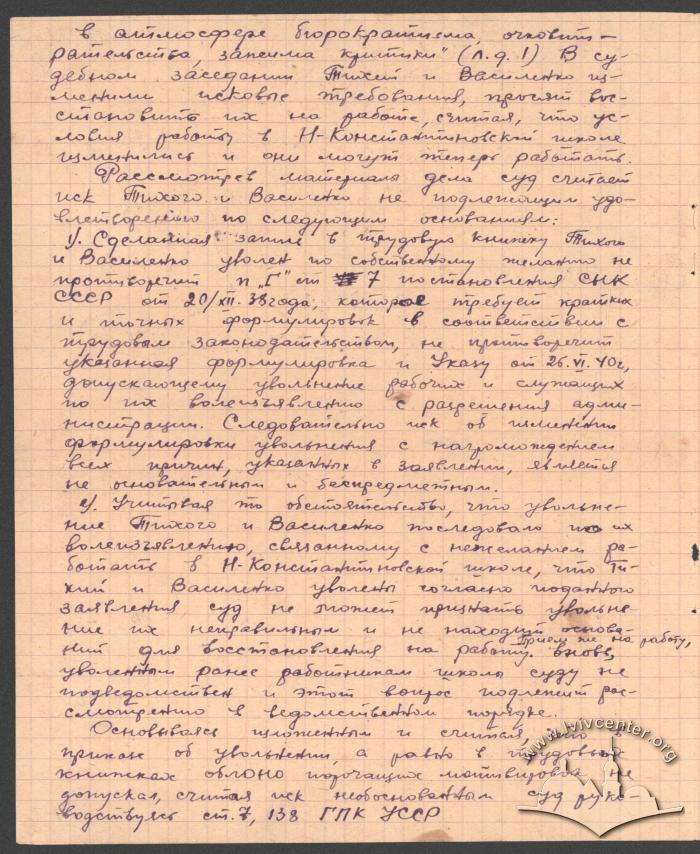 в атмосфере бюрократизма, очковти-
рательства, зажима критики" (л.д. 1) В су-
дебном заседании Тихий и Василенко из-
менили исковые требования, просят вос-
становить их на работе, считая, что ус-
ловия работы в Н-Константиновской школе
изменились и они могут теперь работать.
Рассмотрев материалы дела суд считает
иск Тихого и Василенко не подлежащим удо-
влетворению по следующим основаниям:
1/. Сделанная запись в трудовую книжку Тихого
и Василенко уволен по собственному желанию не
противоречит п „Г" ст 7 постановления СНК
СССР от 20/XII. 38 года, которое требует кратких
и точных формулировок в соответствии с
трудовым законодательством, не противоречит
указанная формулировка и Указу от 26.VI.40г,
допускающему увольнение рабочих и служащих
по их волеизъявлению с разрешения адми-
нистрации. Следовательно иск об изменении
формулировки увольнения с нагромождением
всех причин, указанных в заявлении, является
не основательным и беспредметным.
2/. Учитывая то обстоятельство, что увольне-
ние Тихого и Василенко последовало по их
волеизъявлению, связанному с нежеланием ра-
ботать в Н-Константиновской школе, что Ти-
хий и Василенко уволены согласно поданного
заявления суд не может признать увольне-
ние их неправильным и не находит основа-
ний для восстановления на работу. Прием же на работу, вновь,
уволенным ранее работникам школы суду не
подведомствен и этот вопрос подлежит рас-
смотрению в ведомственном порядке.
Основываясь изложенным и считая, что в
приказе об увольнении, а равно в трудовых
книжках облоно порочащих мотивировок не
допускал, считая иск необоснованным суд руко-
водствуясь ст. 7, 138 ГПК УССР
www.lvivcenter.org